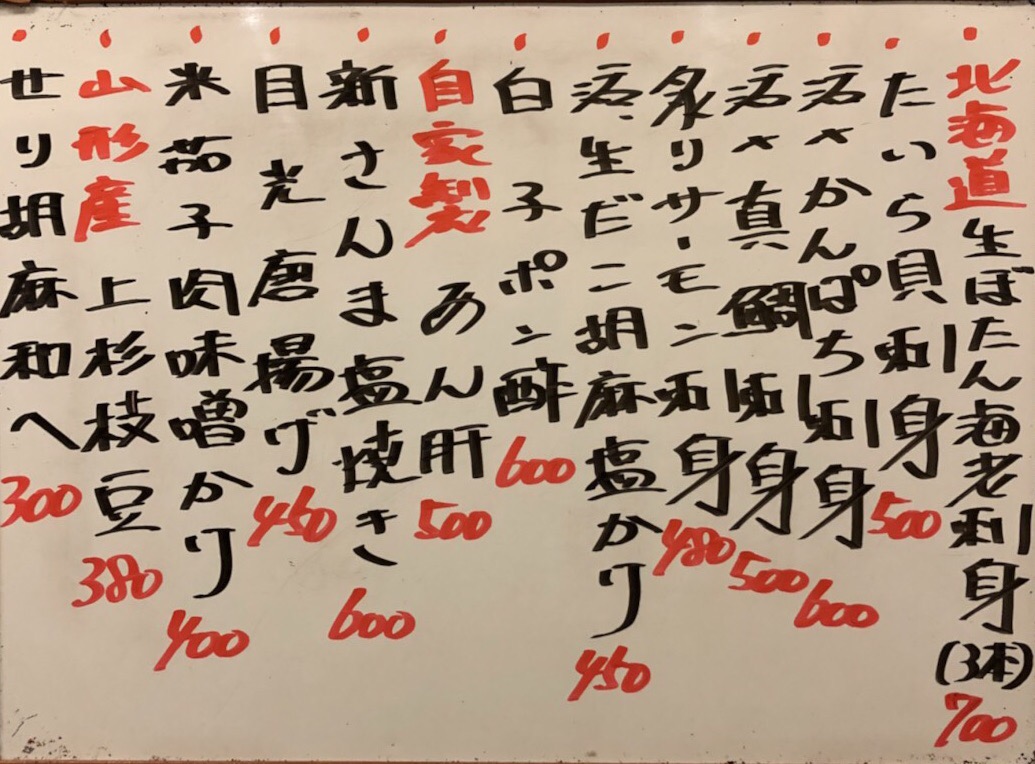 北海道生ぼたん海老刺身(3本)700
たいら貝刺身500
活〆かんぱち刺身600
活〆真鯛刺身500
炙りサーモン刺身480
活生だこ胡麻塩かり450
白子ポン酢600
自家製あん肝500
新さんま塩焼き600
目光唐揚げ450
米茄子肉味噌かり400
山形産上杉枝豆380
せり胡麻和へ300